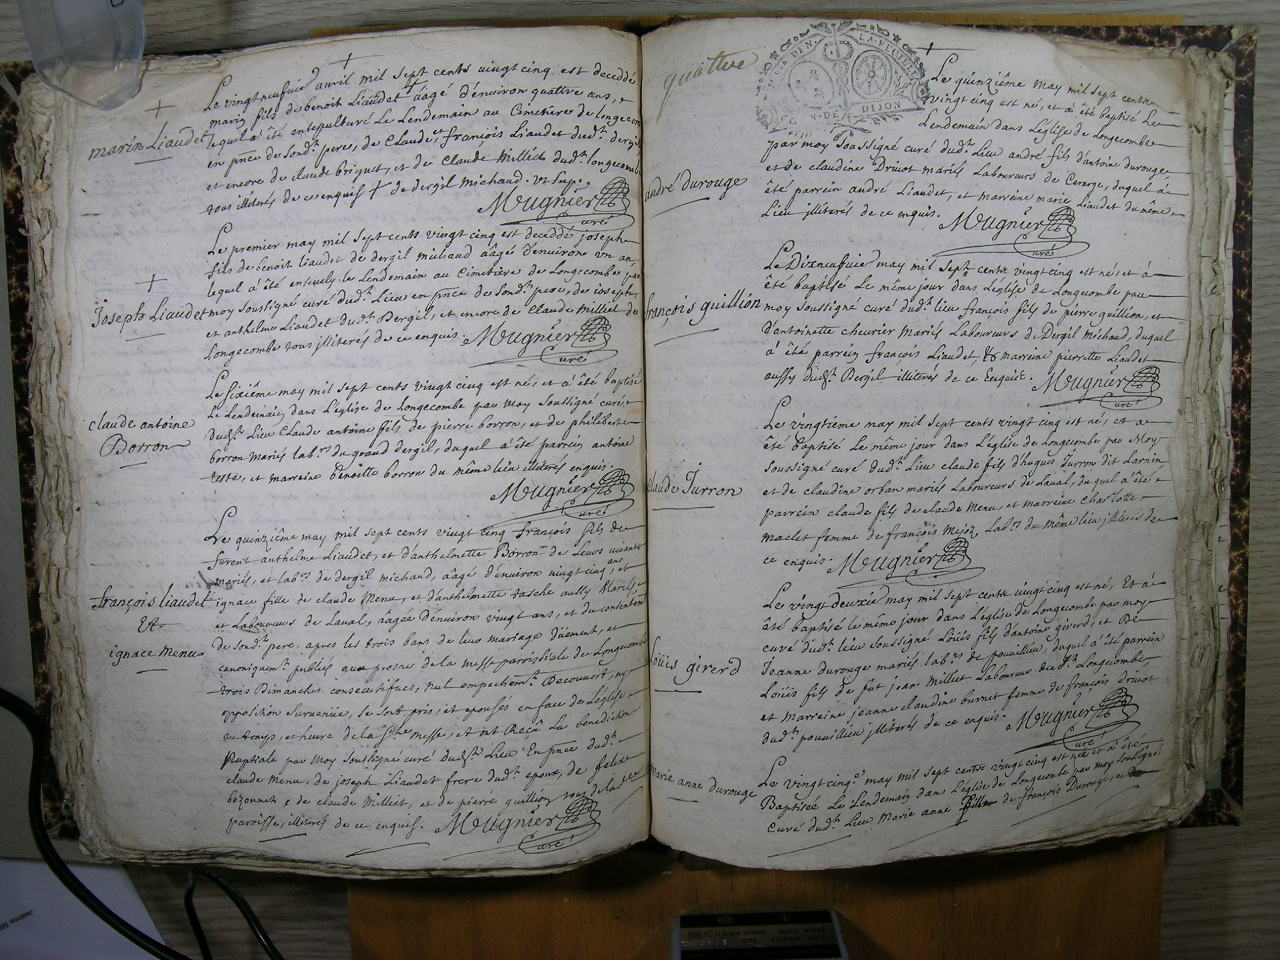 Le vingtneufvie avril mil sept cents vingt cinq est deceddé
marin fils de benoit Liaudet aagé d'environ quattre ans,
lequel a été ensepulturé Le Lendemain au Cimetiere de longecombe
en pnce de sondt. pere, de Claude, et françois Liaudet dudt. dergil
et encore de claude briquet, et de Claude Milliet dudt. longecombe
tous illiterés de ce enquis de dergil michaud. ut sup.
marin Liaudet
Mugnier
curé
Le premier may mil sept cents vingt cinq est deceddé joseph
fils de benoit Liaudet de dergil michaud aâgé d'environs un an,
lequel a été ensevely le Lendemain au Cimetiere de Longecombe par
Joseph Liaudet
moy soussigné curé dudt. Lieu en pnce de sondt. pere, de joseph,
et anthelme Liaudet dudt. Dergil, et encore de Claude Milliet de
Longecombe tous jlliterés de ce enquis.
Mugnier
Curé
Le sixiéme may mil sept cents vingt cinq est né, et a été baptisé
Le Lendemain dans L'eglise de Longecombe par moy soussigné curé
claude antoine
Borron
dudt. Lieu Claude antoine fils de pierre borron, et de philiberte
borron mariés labrs. du grand dergil, duquel a été parrein antoine
et marreine benoitte borron du même lieu illiterés enquis.
Mugnier
Curé
Le quinziéme may mil sept cents vingt cinq françois fils de
furent anthelme Liaudet, et d'anthelmette Borron de Leurs vivants
mariés, et labrs. de dergil michaud, aâgé d'environ vingt cinq ans, et
françois liaudet
Et
ignace menu
ignace fille de claude Menu, et d'anthelmette tasche aussy Mariés,
et Laboureurs de Laval, aâgée d'environ vingt ans, et du consentemt
de sondt. pere, apres les trois bans de leur mariage düement, et
canoniquemt. publiés aux prosnes de la messe parroissiale de Longecombe
trois Dimanches consecutifues, nul empechemt. Decouvert, ny
opposition survenüe, se sont pris, et epousés en face de L'eglise
au temps, et heure de la ste. Messe, et ont Reçû la benediction
Nuptiale par Moy Soussigné curé dudt. Lieu En pnce dudt.
claude Menu, de joseph Liaudet frere dudt. epoux, de felix
bozonnet de claude Milliet, et de pierre quillion tous de ladte
paroisse, illiterés de ce enquis.
Mugnier
Curé
quattre
DIJON
Le quinziéme may mil sept cents
vingt cinq est né, et a été baptisé Le
Lendemain dans L'eglise de Longecombe
par moy soussigné curé dudt. Lieu andré fils d'antoine durouge
andré durouge
et de claudine Druot mariés Laboureurs de Cerarge, duquel a
été parrein andré Liaudet, et marreine marie Liaudet du même
Lieu jlliterés de ce enquis.
Mugnier
curé
Le Dixneufvie may mil sept cents vingt cinq est né, et a
été baptisé Le même jour dans L'eglise de Longecombe par
françois quillion
moy soussigné curé dudt. lieu françois fils de pierre quillion, et
d'antoinette cheurier Mariés Laboureurs de Dergil Michaud, duquel
a été parrein françois Liaudet, & mareine pierrette Liaudet
aussy dudt. Dergil illiterés de ce Enquis.
Mugnier
Curé
Le vingtiéme may mil sept cents vingt cinq est né, et a
été baptisé Le même jour dans L'eglise de Longecombe par Moy
soussigné curé dudt. Lieu claude fils d'hugues Jurron dit Larnin
claude Jurron
et de claudine orban mariés Laboureurs de Laval, duquel a été
parrein claude fils de claude Menu, et marreine Charlotte
maclet femme de françois Mejoz Labrs. du même lieu jlliterés de
ce enquis
Mugnier
curé
Le vingt deuxie may mil sept cents vingt cinq est né, Et a
été baptisé le même jour dans L'eglise de Longecombe par moy
curé dudt. lieu soussigné Loüis fils d'antoine girerd, et De
Loüis girerd
Jeanne durouge mariés labrs. de pouvillieu, duquel a été parrein
Loüis fils de fut jean Milliet Laboureur dudt. Longecombe
et marreine jeanne claudine burnet femme de françois druot
dudt. pouvillieu jlliterés de ce enquis.
Mugnier
Curé
marie anne durouge
Le vingt cinqe. may mil sept cents vingt cinq est née et a été
Baptisée Le Lendemain dans L'eglise de Longecombe par moy soussigné
curé dudt. Lieu Marie anne fille de françois Durouge, et de